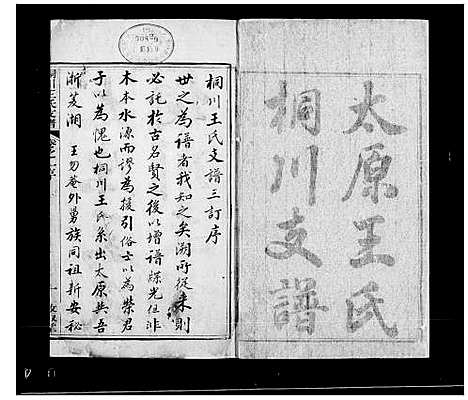 太原王氏
桐川支譜
桐川王氏支譜三訂序
世之為譜者我知之矣溯所從来則
必託於古名賢之後以增譜牒光但非
木本水源而謬為援引俗士以為榮君
子以為愧也桐川王氏系出太原與吾
浙菱湖 王勿菴外舅族同祖新安秘